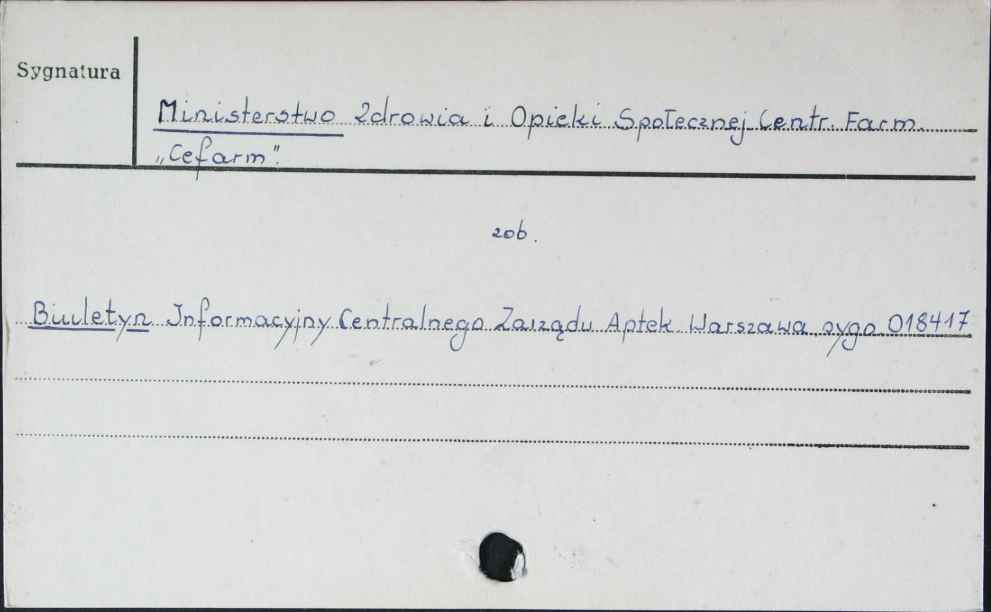 Sygnatura
Ministerstwo Zdrowia i Opieki Społecznej Centr. Farm.
„Cefarm".
zob.
Biuletyn Informacyjny Centralnego Zarządu Aptek Warszawa sygn. 018417